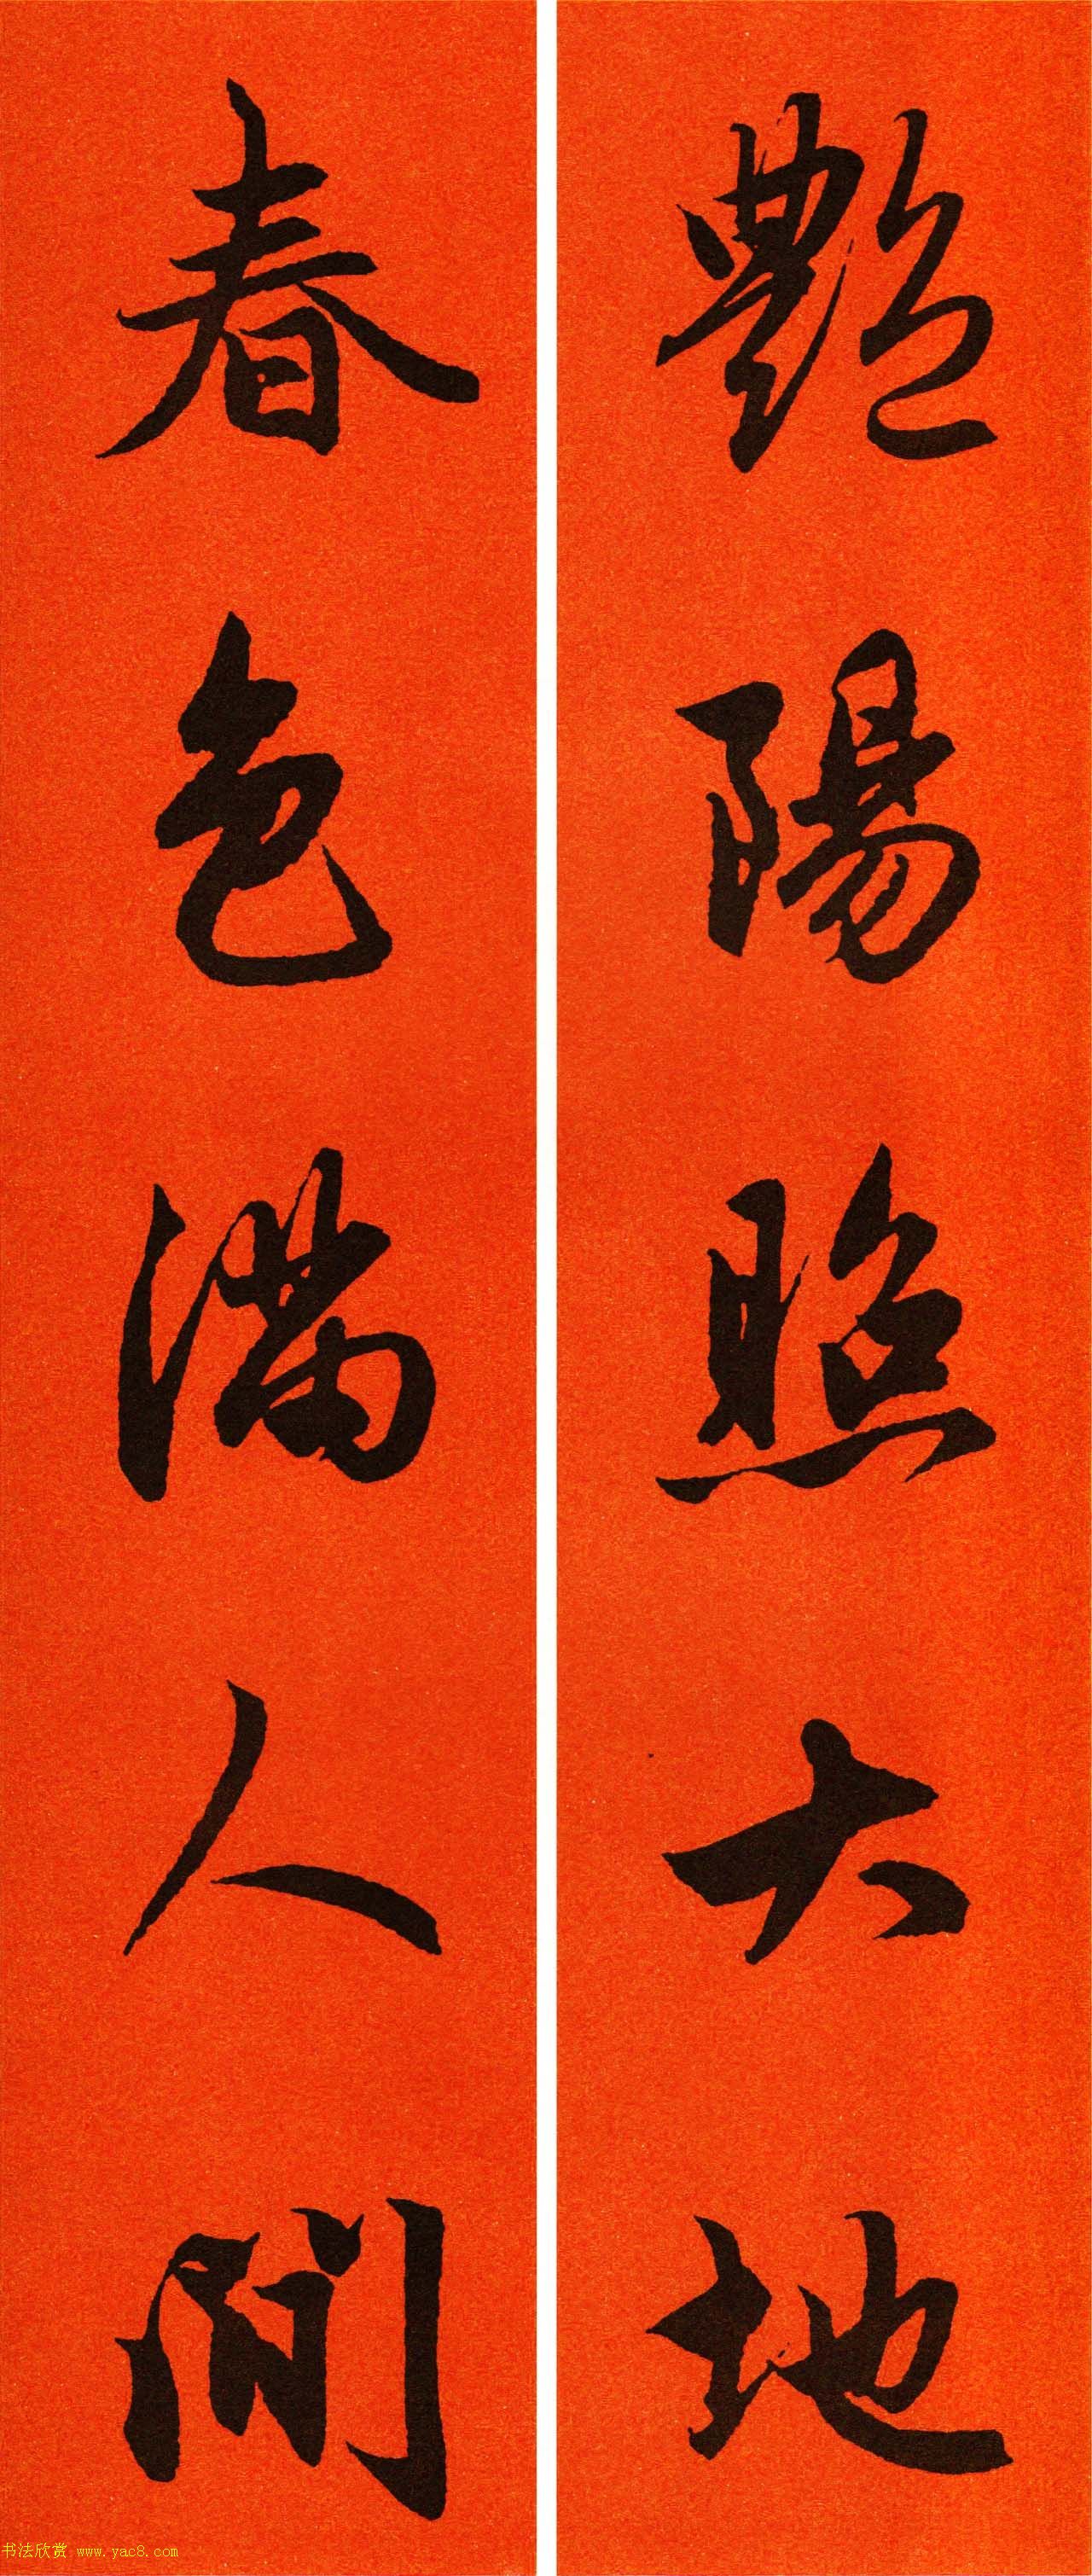 艷陽照大地
春色滿人間
书法欣赏 www.yac8.com